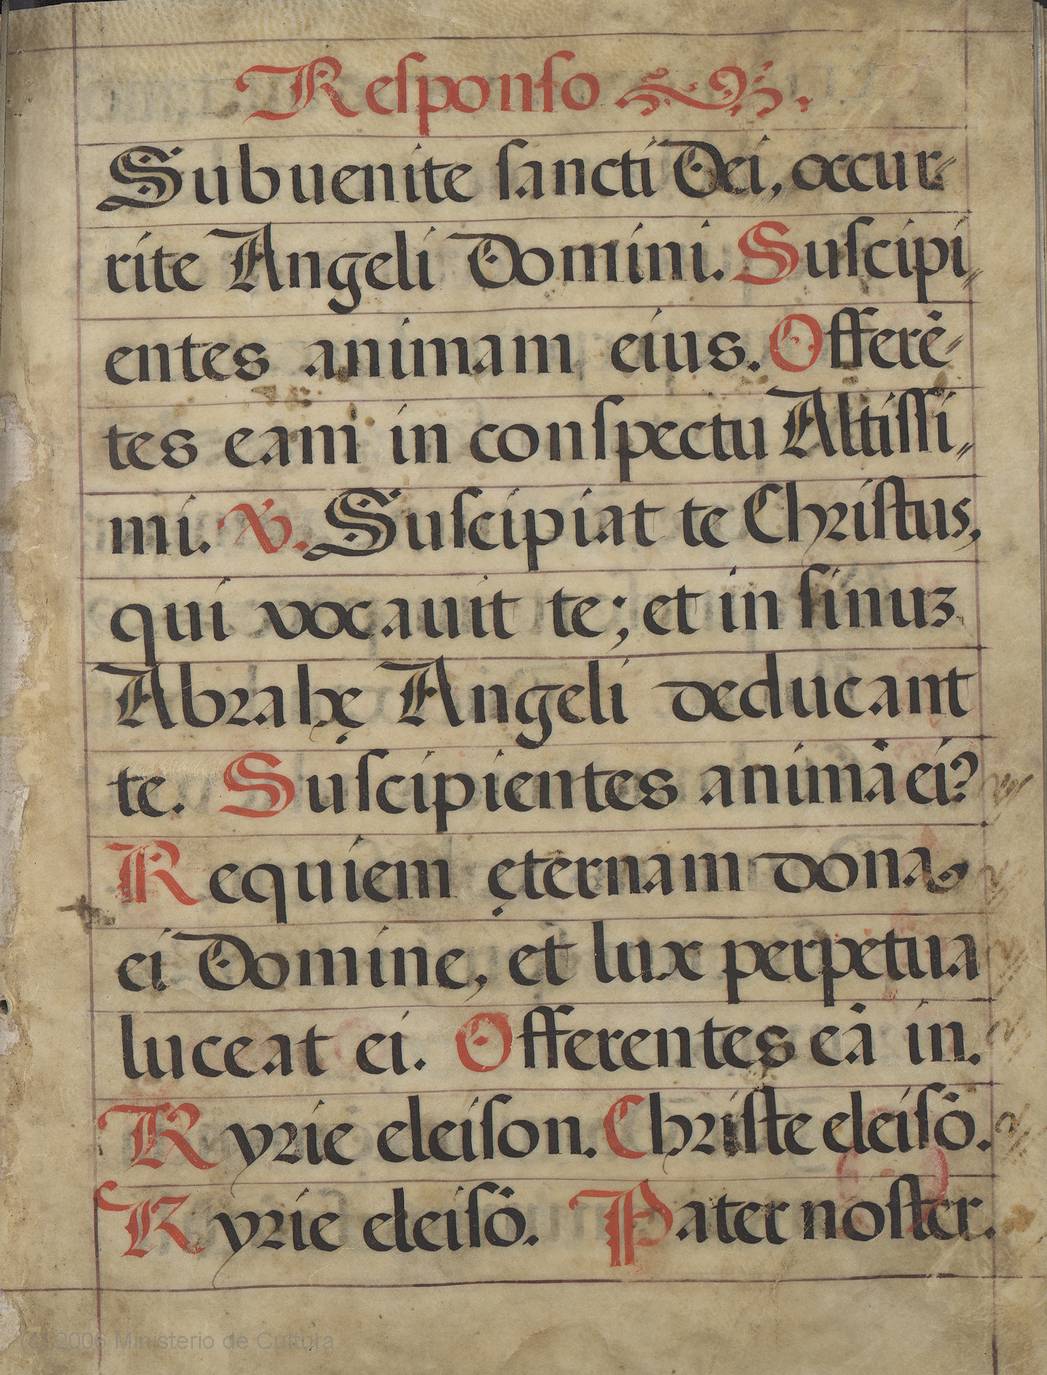 Reſponſo
Subuenite ſancti Dei, occur-
rite Angeli Domini. Suſcipi,,
entes animam eius. Offerē-
tes eam in conſpectu Altiſſi,,
mi. ℣. Suſcipiat te Chriſtus,
qui vocauit te; et in ſinuʒ
Abrahę Angeli deducant
te. Suſcipientes animā ei?
Requiem ęternam dona
ei Domine, et lux perpetua
luceat ei. Offerentes eā in.
Kyrie eleiſon. Chriſte eleiſō.
Kyrie eleiſō. Pater noſter.
(c) 2006 Ministerio de Cultura